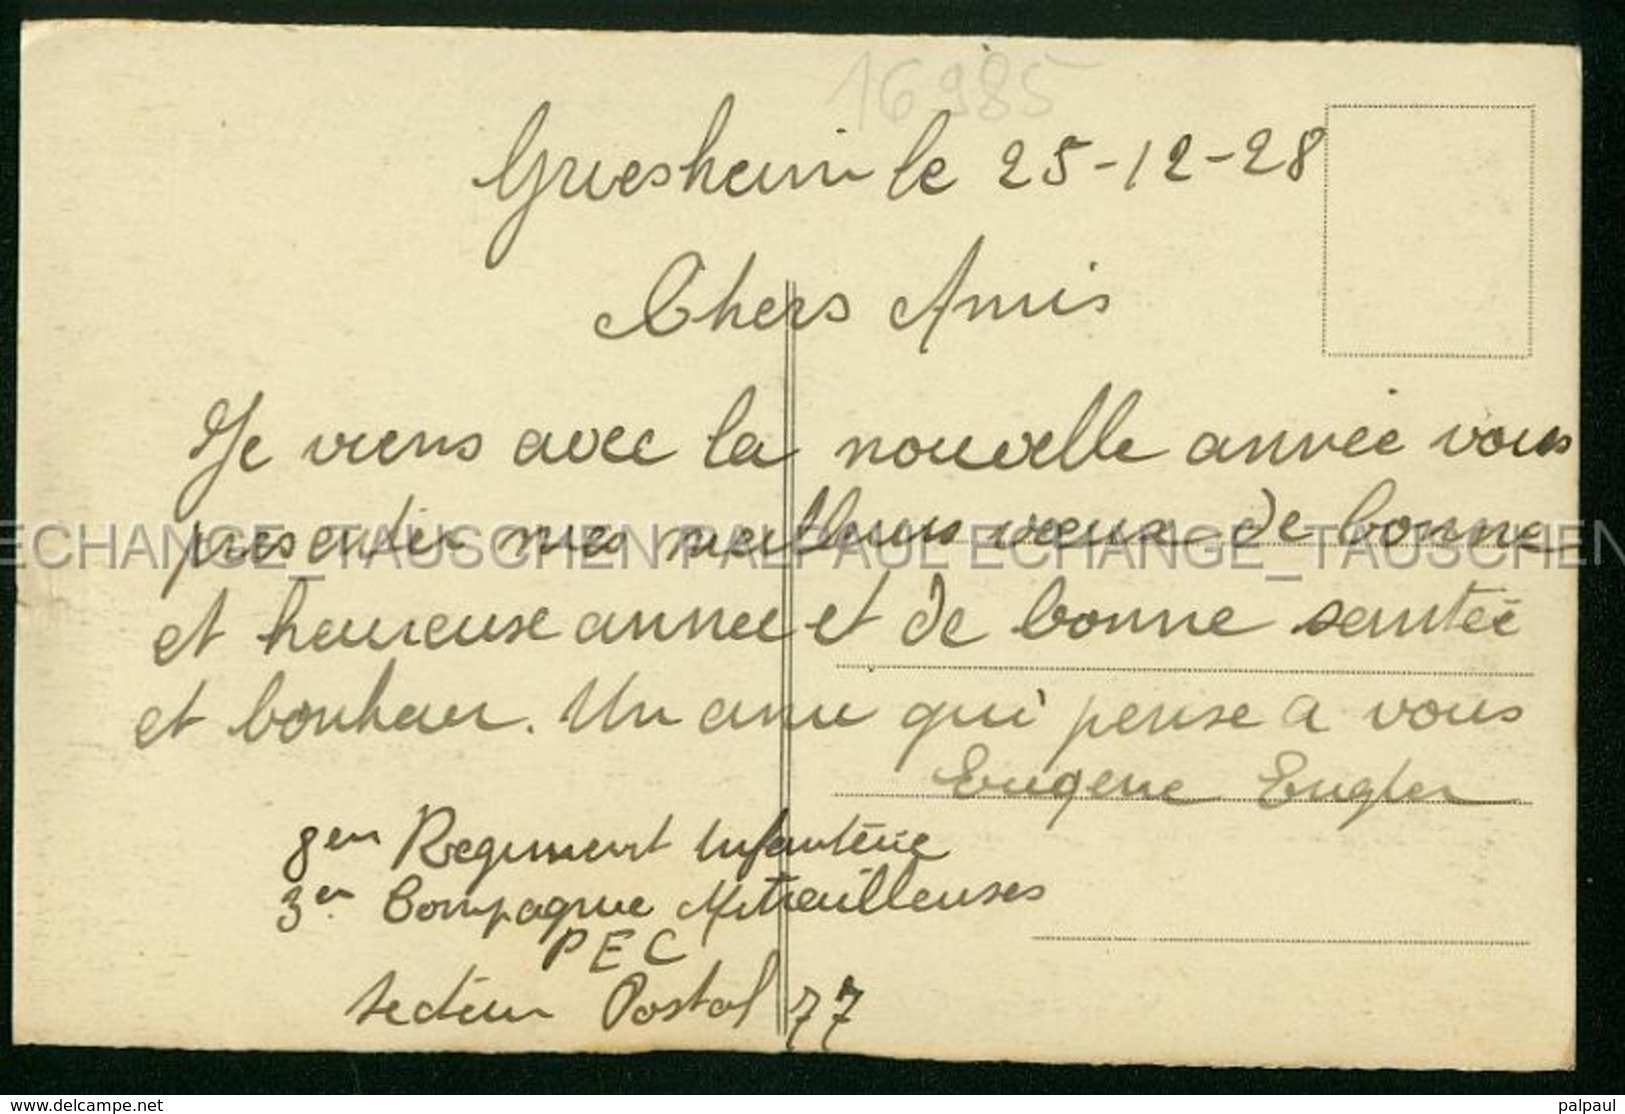 16985
Griesheim le 25-12-28
Chers Amis
Je viens avec la nouvelle année vous
presenter mes meilleurs vœux de bonne
ECHANGE_TAUSCHEN PALPAUL ECHANGE_TAUSCHEN
et heureuse année et de bonne santée
et bonheur. Un ami qui pense a vous
Eugene Engler
8em Regiment Infantérie
3em Compagnie Mitrailleuses
PEC
Secteur Postal 77
www.delcampe.net
palpaul